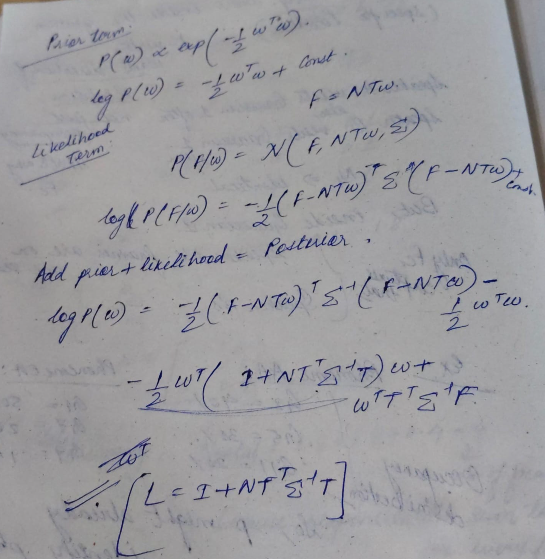 Prior term:
P(ω) ∝ exp(-½ ωᵀω).
log P(ω) = -½ ωᵀω + Const.
F = NTω.
Likelihood
Term:
P(F/ω) = N(F, NTω, Σ)
log P(F/ω) = -½ (F-NTω)ᵀ Σ⁻¹ (F-NTω) + Const.
Add prior + likelihood = Posterior.
log P(ω) = -½ (F-NTω)ᵀ Σ⁻¹ (F-NTω) -
½ ωᵀω.
-½ ωᵀ( I + NTᵀ Σ⁻¹T) ω +
ωᵀTᵀ Σ⁻¹ F
[L = I + NTᵀ Σ⁻¹T]